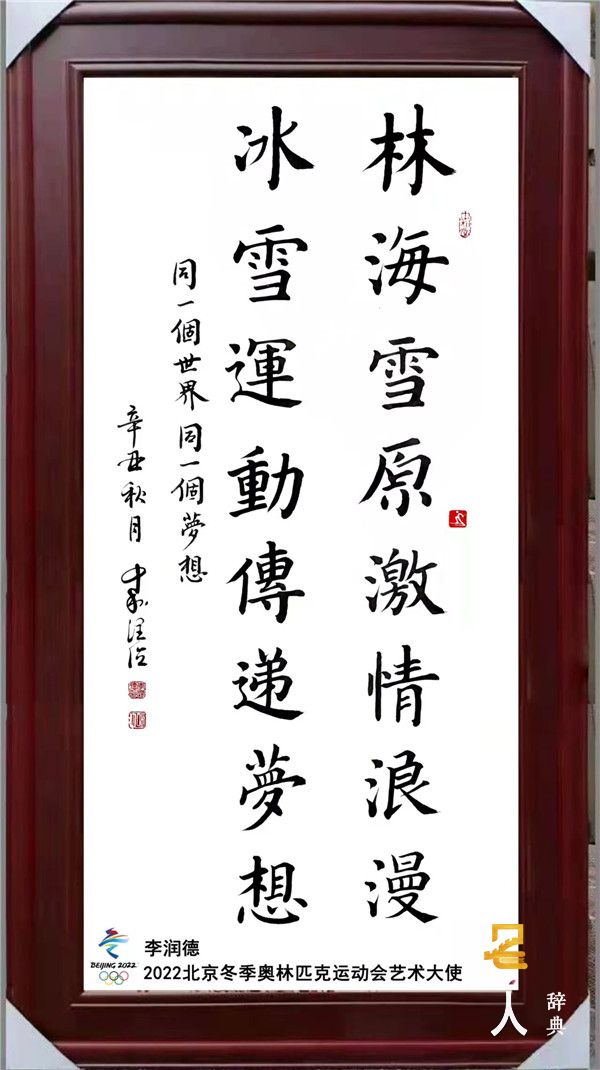 林海雪原激情浪漫
冰雪運動傳递夢想
同一個世界同一個夢想
辛丑秋月
BEIJING 2022
李润德
2022北京冬季奥林匹克运动会艺术大使
名人
辞典